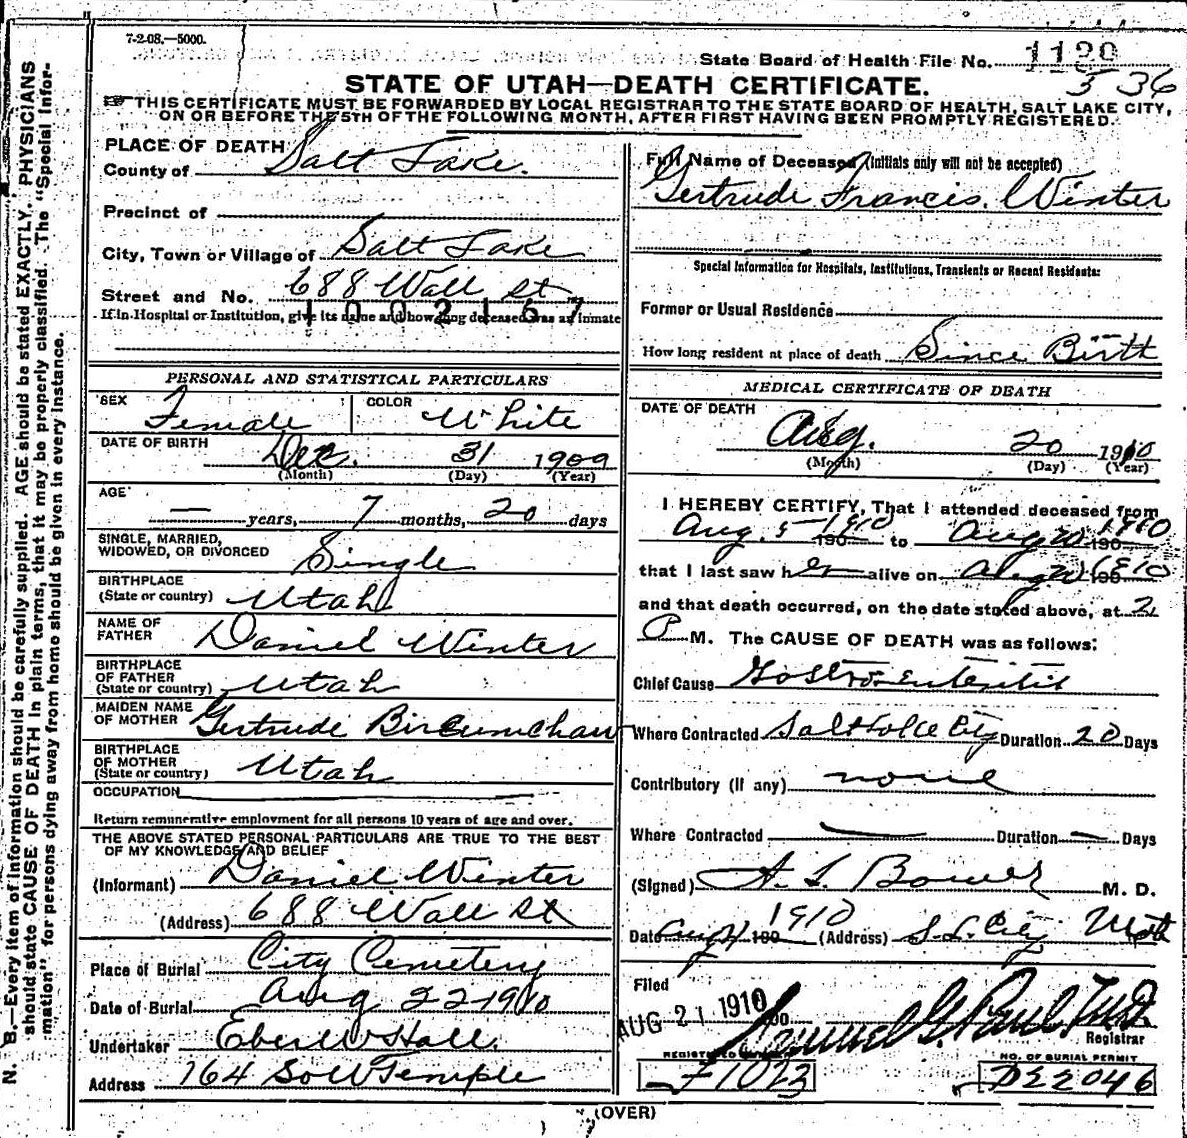 7-2-08.—5000.
State Board of Health File No. 1120
536
STATE OF UTAH—DEATH CERTIFICATE.
THIS CERTIFICATE MUST BE FORWARDED BY LOCAL REGISTRAR TO THE STATE BOARD OF HEALTH, SALT LAKE CITY,
ON OR BEFORE THE 5TH OF THE FOLLOWING MONTH, AFTER FIRST HAVING BEEN PROMPTLY REGISTERED.
N. B.—Every item of information should be carefully supplied. AGE should be stated EXACTLY. PHYSICIANS
should state CAUSE OF DEATH in plain terms, that it may be properly classified. The "Special Infor-
mation" for persons dying away from home should be given in every instance.
PLACE OF DEATH
County of Salt Lake.
Precinct of
City, Town or Village of Salt Lake
Street and No. 688 Wall St
1002157
If in Hospital or Institution, give its name and how long deceased was an inmate
PERSONAL AND STATISTICAL PARTICULARS
SEX Female COLOR White
DATE OF BIRTH Dec. 31 1909
(Month) (Day) (Year)
AGE — years, 7 months, 20 days
SINGLE, MARRIED,
WIDOWED, OR DIVORCED Single
BIRTHPLACE
(State or country) Utah
NAME OF
FATHER Daniel Winter
BIRTHPLACE
OF FATHER
(State or country) Utah
MAIDEN NAME
OF MOTHER Gertrude
BIRTHPLACE
OF MOTHER
(State or country) Utah
OCCUPATION
Return remunerative employment for all persons 10 years of age and over.
THE ABOVE STATED PERSONAL PARTICULARS ARE TRUE TO THE BEST
OF MY KNOWLEDGE AND BELIEF
(Informant) Daniel Winter
(Address) 688 Wall St
Place of Burial City Cemetery
Date of Burial Aug 22 1910
Undertaker Eber W Hall.
Address 164 So W Temple
Full Name of Deceased (Initials only will not be accepted)
Gertrude Francis Winter
Special Information for Hospitals, Institutions, Transients or Recent Residents:
Former or Usual Residence
How long resident at place of death Since Birth
MEDICAL CERTIFICATE OF DEATH
DATE OF DEATH
Aug. 20 1910
(Month) (Day) (Year)
I HEREBY CERTIFY, That I attended deceased from
Aug. 5 1910 190 to Aug 20 1910 190
that I last saw her alive on Aug 20 1910 190
and that death occurred, on the date stated above, at 2
P M. The CAUSE OF DEATH was as follows:
Chief Cause Gastro-Enteritis
Where Contracted Salt Lake City Duration 20 Days
Contributory (if any) none
Where Contracted — Duration — Days
(Signed) A. L. Bower M. D.
Date Aug 21 1910 190 (Address) S. L. City Utah
Filed
AUG 21 1910 190 Samuel G. Paul M.D.
Registrar
REGISTERED NUMBER NO. OF BURIAL PERMIT
F1023 D22046
(OVER)